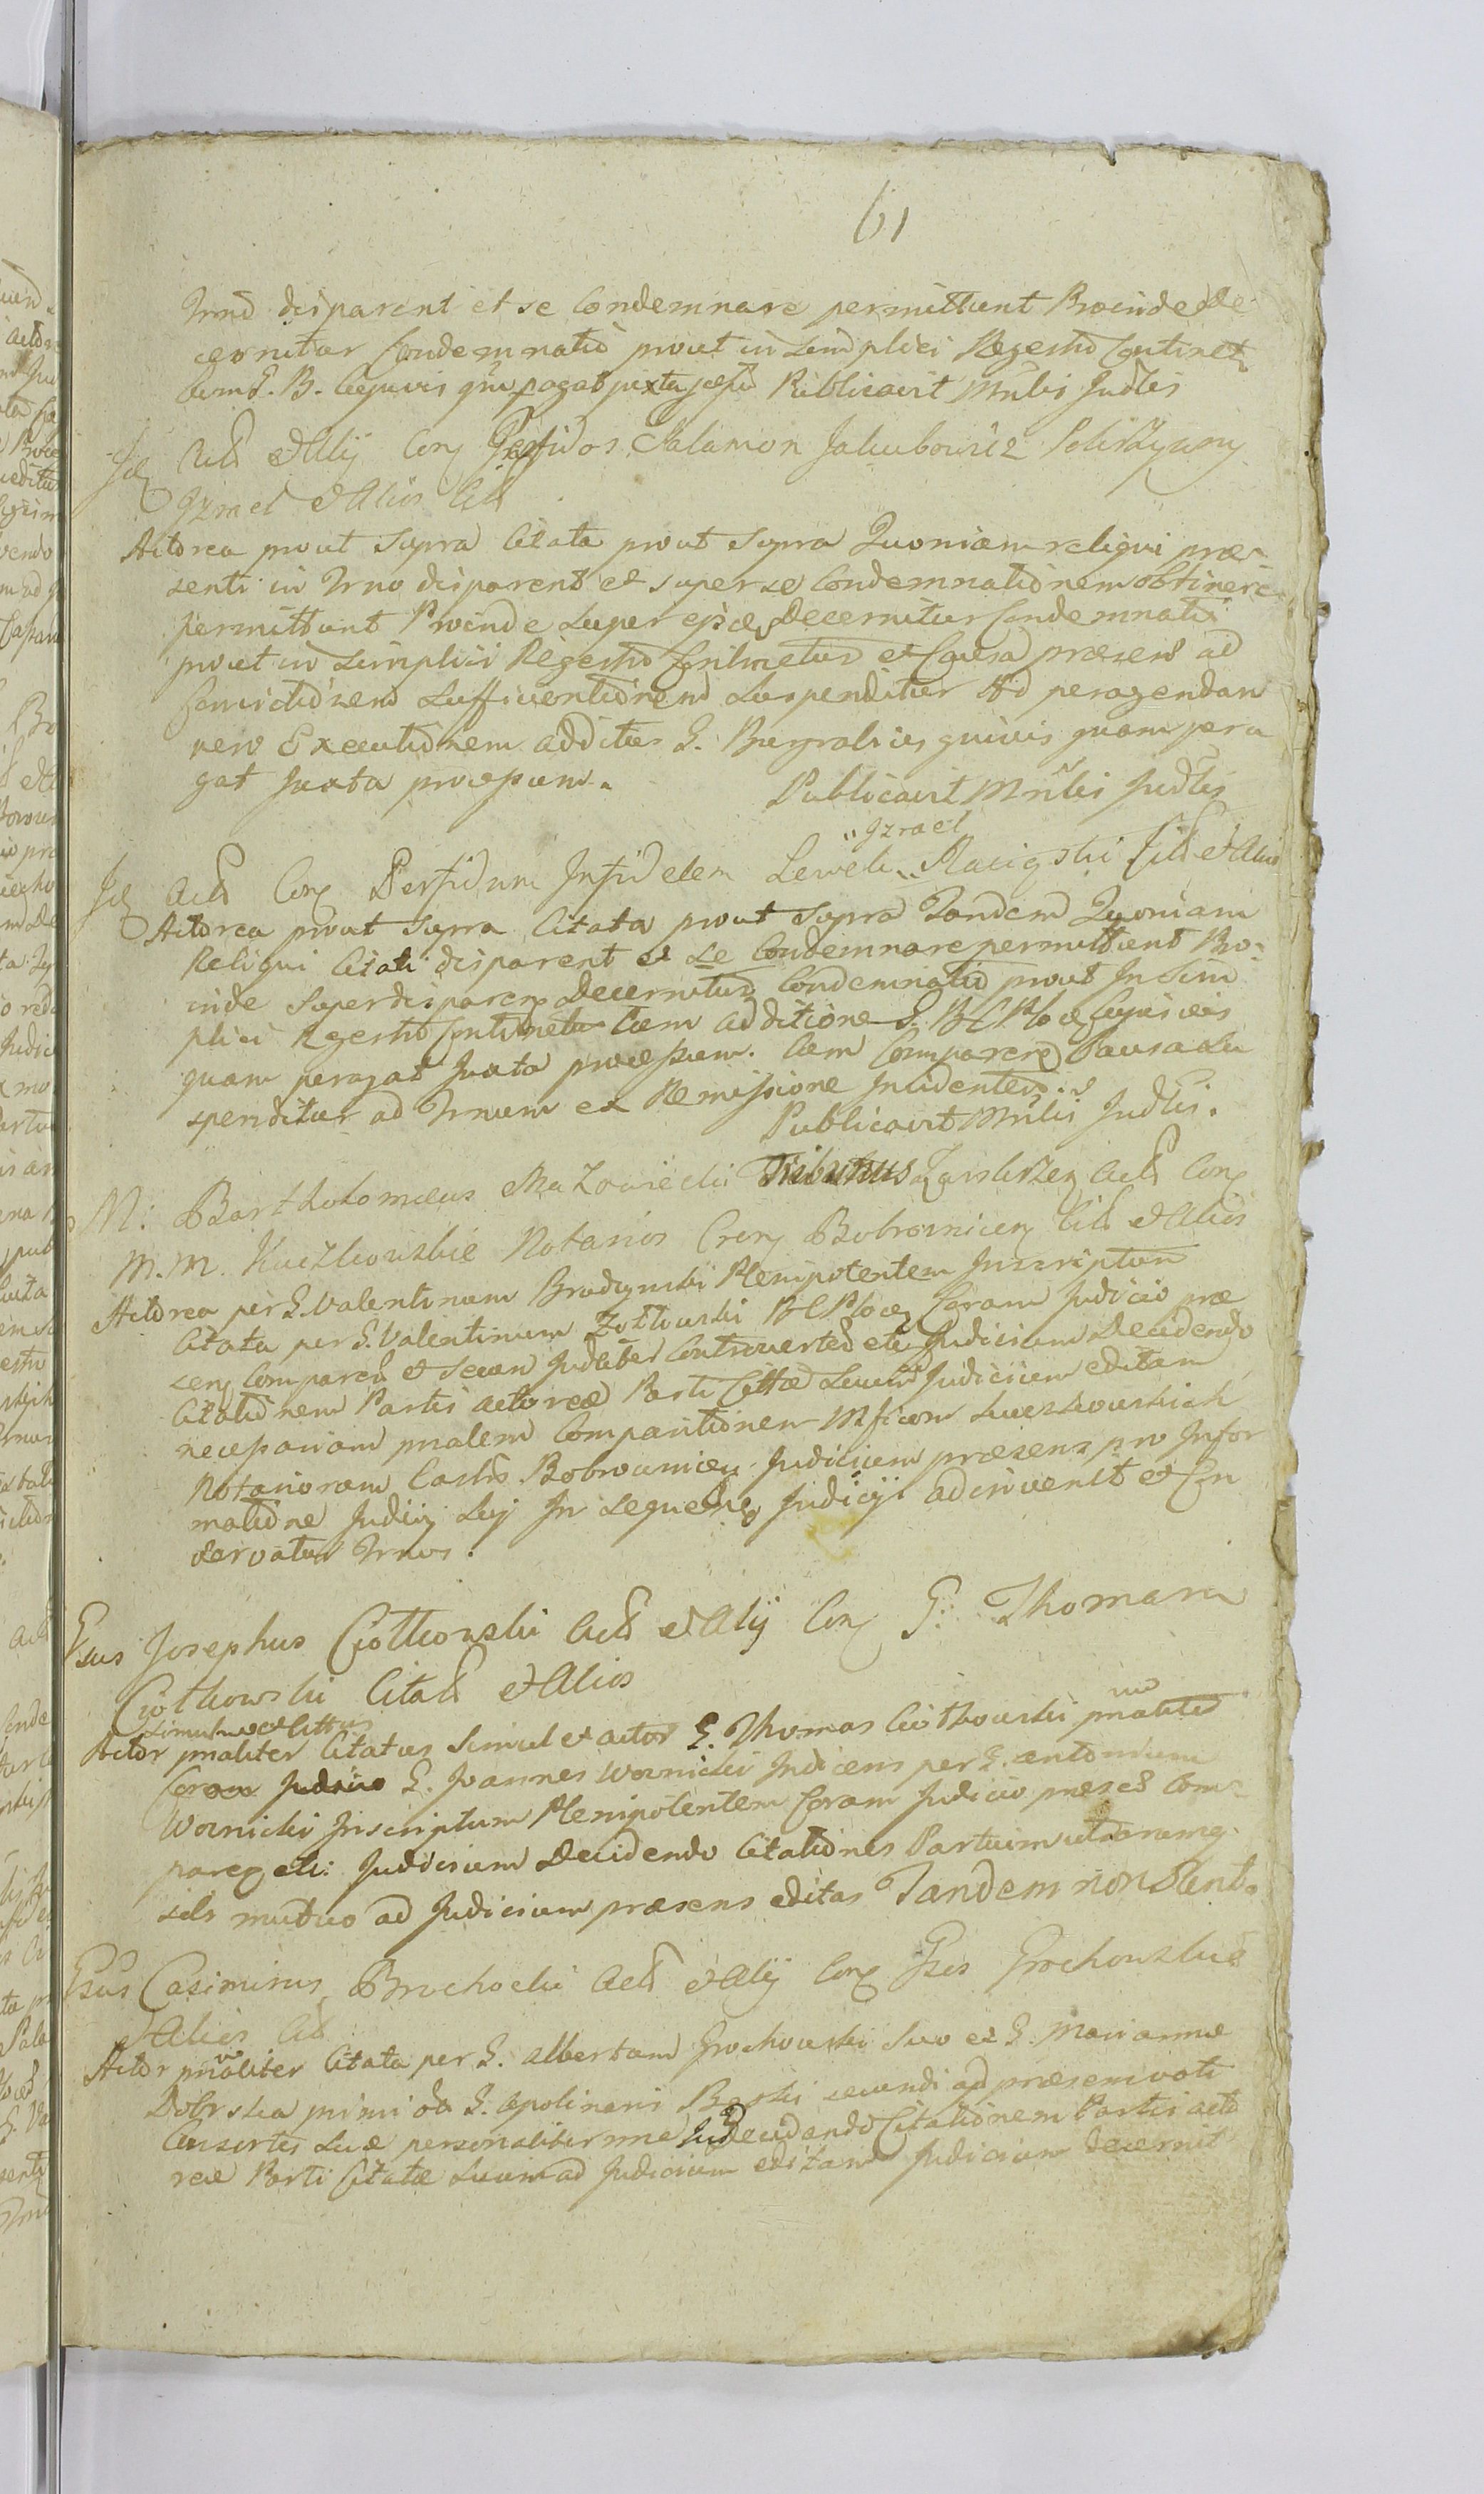 61
Trno disparent et se Condemnare permittunt Proinde De-
cernitur Condemnatio prout in simplici Regestro Continetr
cum G. B. Cujusvis qui pagat juxta Publicavit Mnlis Judlis
Id Act et Alij Con Perfidos Salamon Jakubowicz
Izrael et Alios Cit
Actorea prout Supra Citata prout Supra Quoniam reliqui præ-
senti in Trno disparent et super se Condemnationem obtinere
permittunt Proinde super Decernitur Condemnatio
prout in simplici Regestro Continetur et Causa præsens ad
suspenditur Ad peragendam
vero Executionem additur G. Burgrabius quivis quam pera
gat Juxta processum.
Publicavit Mnlis Judlis
"Izrael
Id Act Con Perfidum Infidelem Lewek Cit et Alios
Actorea prout Supra Citata prout Supra Tandem Quoniam
Reliqui Citati disparent et se Condemnare permittunt Pro-
inde super disparen Decernitur Condemnatio prout In Sim
plici Regestro Continetur Cum additione G. B C Ploc Cujusvis
quam peragat Juxta processum. Cum Comparen Causa su
spenditur ad Trnum ex Remissione Incidenten
Publicavit Mnlis Judlis.
M: Bartholomæus Mazowiecki Tribunus Zawskrzen Act Con
M. M. Kuczkowskie Notarios Cren Bobrownicen Cit et Alios
Actorea per G. Valentinum Plenipotentem Inscriptum
Citata per G. Valentinum Zottowski B C Ploc Coram Judicio præ
sen Comparen et Secum Judliter Controverten etc Judicium Decidendo
Citationem Partis actoreæ Parti Cittæ suum Judicium editam
necessariam pnalem Comparitionem Mficorum Kuczkowskich
Notariorum Castr Bobrownicen Judicium præsens pro Infor
matione Judicij sui In Judicij adinvenit et Con
servatur Trnus.
Gsus Josephus Ciołkowski Act et Alij Con G: Thomam
Ciołkowski Citat et Alios
simul et Cittus
Actor pnaliter Citatus Simul et actor G. Thomas Ciołkowski pnaliter
Coram Judicio G. Joannes Woznicki Judicens per G. Antonium
Woznicki Inscriptum Plenipotentem Coram Judicio præsen Com-
paren etc: Judicium Decidendo Citationes Partium utrarumq
sibi mutuo ad Judicium præsens editas Tandem non stent.
Gsus Casimirus Brochocki Act et Alij Con Gsos Grochowskie
et Alios Cit
Actor pnaliter Citata per G. Albertum Grochowski Suo et G. Mariannæ
Dobrska primi G. Apolinaris secundi ad præsens voti
Consortis suæ personaliter Jud Decidendo Citationem Partis acto
reæ Parti Citatæ suum ad Judicium editam Judicium decernit